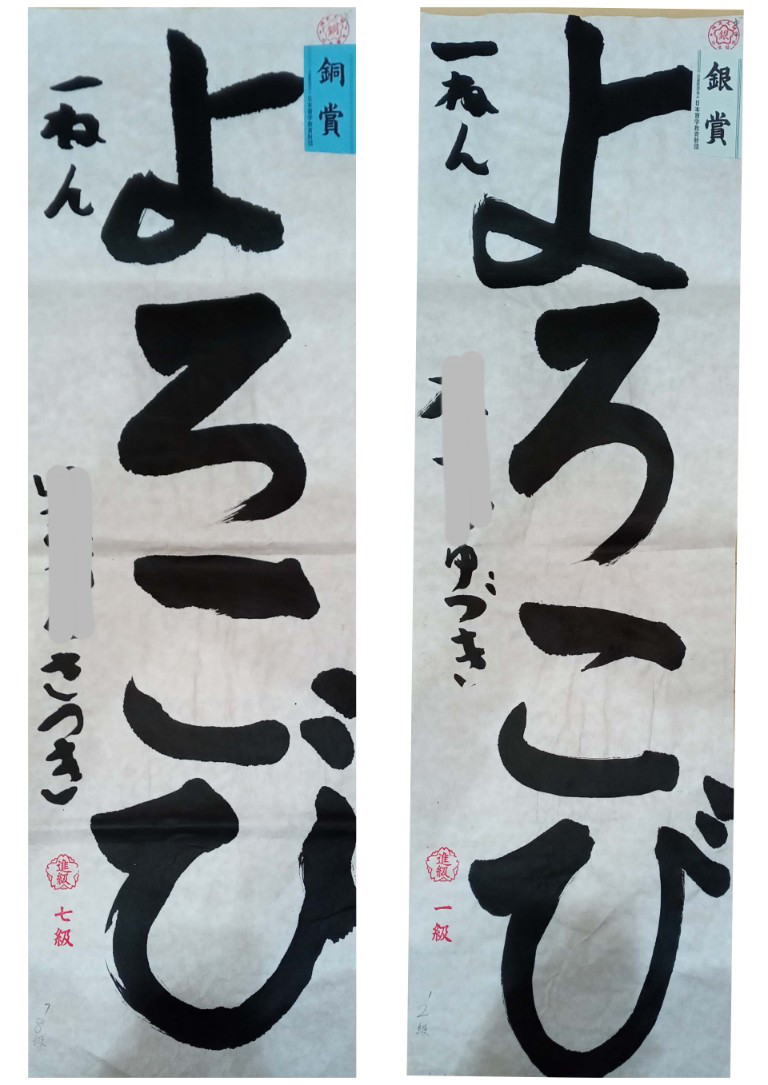 銅
銅賞
日本習字教育財団
よろこび
一ねん
さつき
進級
七級
7
8級
銀
銀賞
日本習字教育財団
よろこび
一ねん
ゆづき
進級
一級
1
2級